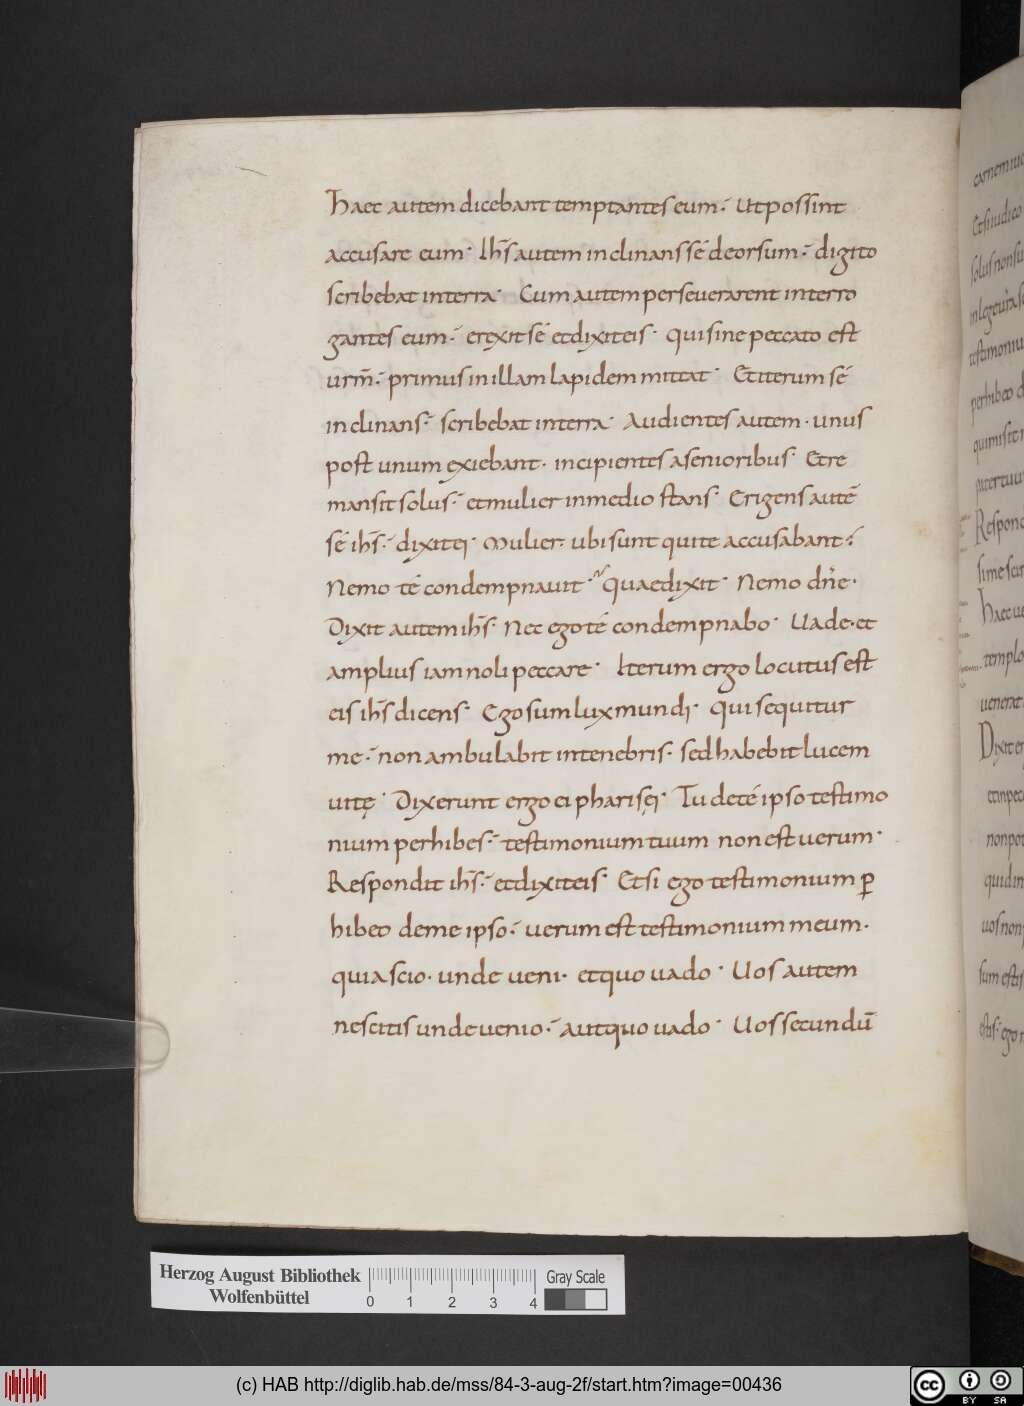 Haec autem dicebant temptantes eum· Ut possint
accusare eum· Ihs̄ autem inclinans sé deorsum· digito
scribebat in terra· Cum autem perseverarent interro
gantes eum· erexit sé et dixit eis· Qui sine peccato est
urm̄· primus in illam lapidem mittat· Et iterum sé
inclinans· scribebat in terra· Audientes autem· unus
post unum exiebant· incipientes a senioribus· Et re
mansit solus· et mulier in medio stans· Erigens autē
sé ihs̄· dixit ei· Mulier· ubi sunt qui te accusabant·
Nemo té condempnauit· Quae dixit· Nemo dn̄e·
Dixit autem ihs̄· Nec ego té condempnabo· Uade· et
amplius iam noli peccare· Iterum ergo locutus est
eis ihs̄ dicens· Ego sum lux mundi· qui sequitur
me· non ambulabit in tenebris· sed habebit lucem
uitę· Dixerunt ergo ei pharisęi· Tu de té ipso testimo
nium perhibes· testimonium tuum non est uerum·
Respondit ihs̄· et dixit eis· Et si ego testimonium ꝑ
hibeo de me ipso· uerum est testimonium meum·
quia scio· unde ueni· et quo uado· Uos autem
nescitis unde uenio· aut quo uado· Uos secundū
carnem iud
Et si iudico
solus non su
in lege ura s
testimoniu
perhibeo d
qui misit
pater tuu
Respond
si me scir
haec ue
templo
uenerat
Dixit er
et in pecc
non pot
quid in
uos non
sum estis
estis· ego n
Herzog August Bibliothek
Wolfenbüttel
0 1 2 3 4
Gray Scale
(c) HAB http://diglib.hab.de/mss/84-3-aug-2f/start.htm?image=00436
cc BY SA